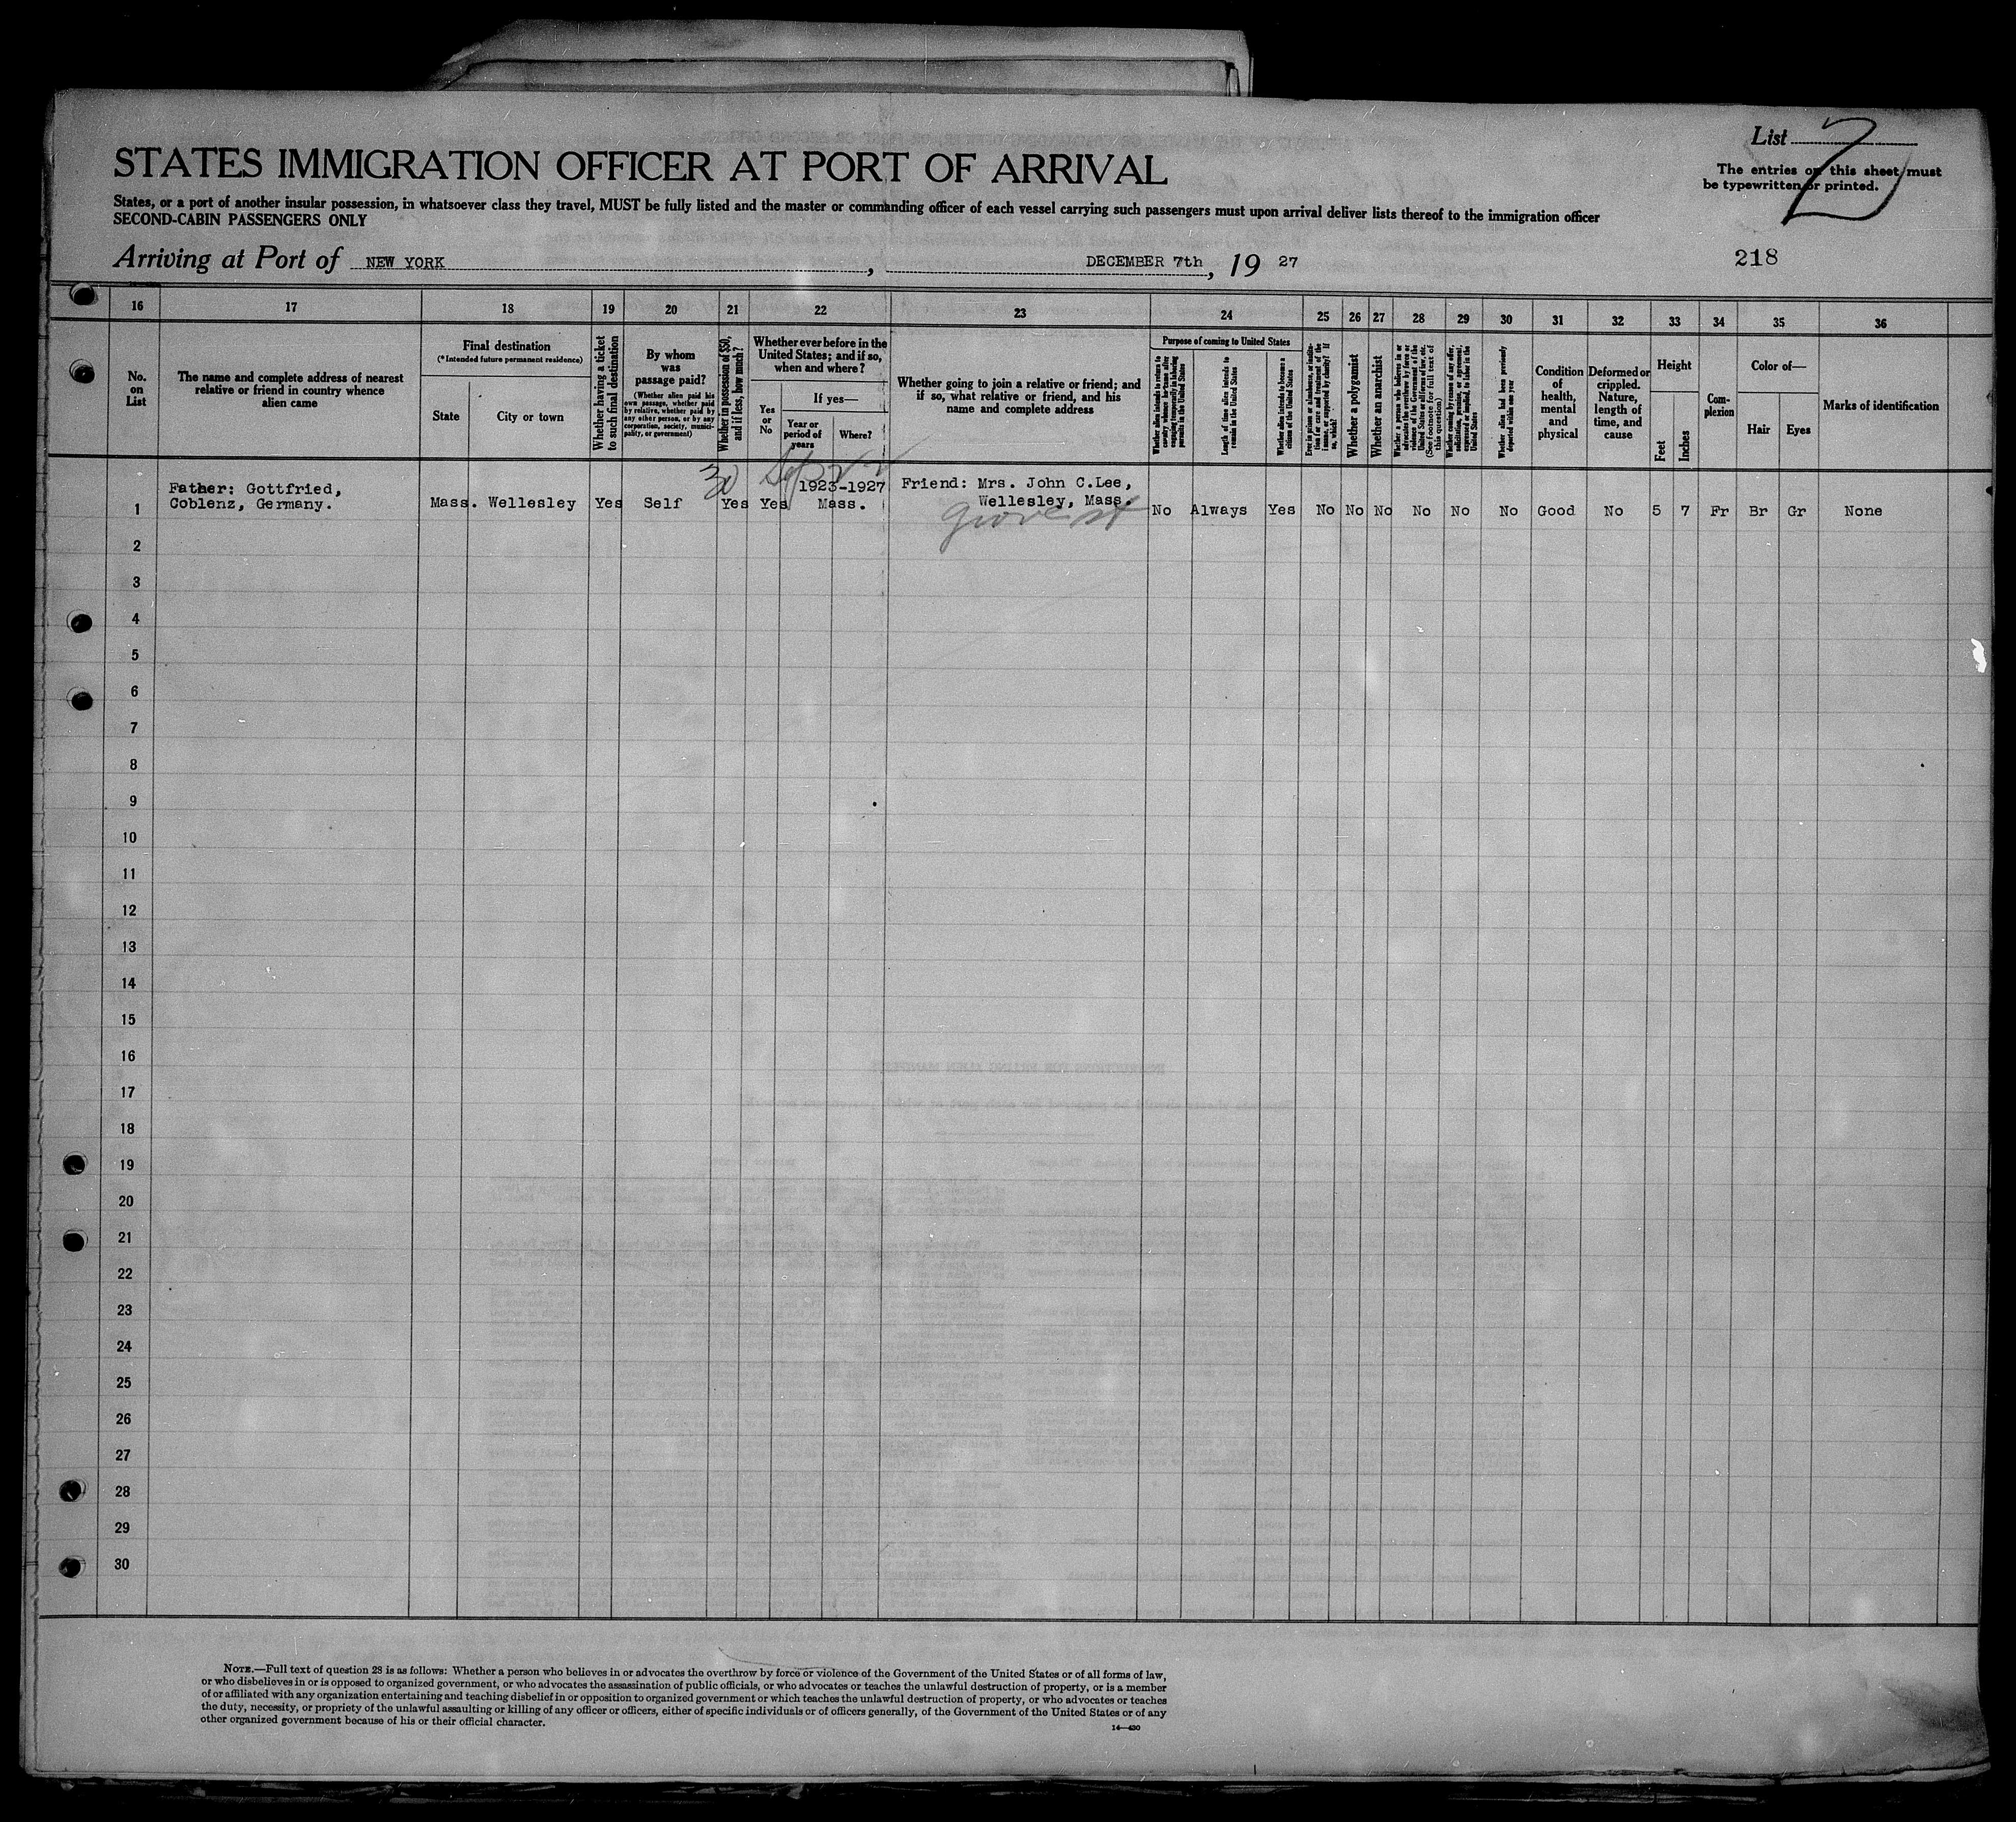 List 2
The entries on this sheet must
be typewritten or printed.
STATES IMMIGRATION OFFICER AT PORT OF ARRIVAL
States, or a port of another insular possession, in whatsoever class they travel, MUST be fully listed and the master or commanding officer of each vessel carrying such passengers must upon arrival deliver lists thereof to the immigration officer
SECOND-CABIN PASSENGERS ONLY
Arriving at Port of NEW YORK, DECEMBER 7th, 19 27
218
16 17 18 19 20 21 22 23 24 25 26 27 28 29 30 31 32 33 34 35 36
No.
on
List
The name and complete address of nearest
relative or friend in country whence
alien came
Final destination
(*Intended future permanent residence)
State
City or town
Whether having a ticket
to such final destination
By whom
was
passage paid?
(Whether alien paid his
own passage, whether paid
by relative, whether paid by
any other person, or by any
corporation, society, munici-
pality, or government)
Whether in possession of $50,
and if less, how much?
Whether ever before in the
United States; and if so,
when and where?
Yes
or
No
If yes—
Year or
period of
years
Where?
Whether going to join a relative or friend; and
if so, what relative or friend, and his
name and complete address
Purpose of coming to United States
Whether alien intends to return to
country whence he came after
engaging temporarily in laboring
pursuits in the United States
Length of time alien intends to
remain in the United States
Whether alien intends to become a
citizen of the United States
Ever in prison or almshouse, or institu-
tion for care and treatment of the
insane, or supported by charity? If
so, which?
Whether a polygamist
Whether an anarchist
Whether a person who believes in or
advocates the overthrow by force or
violence of the Government of the
United States or all forms of law, etc.
(See footnote for full text of
this question)
Whether coming by reason of any offer,
solicitation, promise, or agreement,
expressed or implied, to labor in the
United States
Whether alien had been previously
deported within one year
Condition
of
health,
mental
and
physical
Deformed or
crippled.
Nature,
length of
time, and
cause
Height
Feet
Inches
Com-
plexion
Color of—
Hair
Eyes
Marks of identification
30
1923-1927
Father: Gottfried,
Coblenz, Germany.
Friend: Mrs. John C.Lee,
Wellesley, Mass.
Grove st
1 Mass. Wellesley Yes Self Yes Yes Mass. No Always Yes No No No No No No Good No 5 7 Fr Br Gr None
2
3
4
5
6
7
8
9
10
11
12
13
14
15
16
17
18
19
20
21
22
23
24
25
26
27
28
29
30
NOTE.—Full text of question 28 is as follows: Whether a person who believes in or advocates the overthrow by force or violence of the Government of the United States or of all forms of law,
or who disbelieves in or is opposed to organized government, or who advocates the assassination of public officials, or who advocates or teaches the unlawful destruction of property, or is a member
of or affiliated with any organization entertaining and teaching disbelief in or opposition to organized government or which teaches the unlawful destruction of property, or who advocates or teaches
the duty, necessity, or propriety of the unlawful assaulting or killing of any officer or officers, either of specific individuals or of officers generally, of the Government of the United States or of any
other organized government because of his or their official character.
14—430